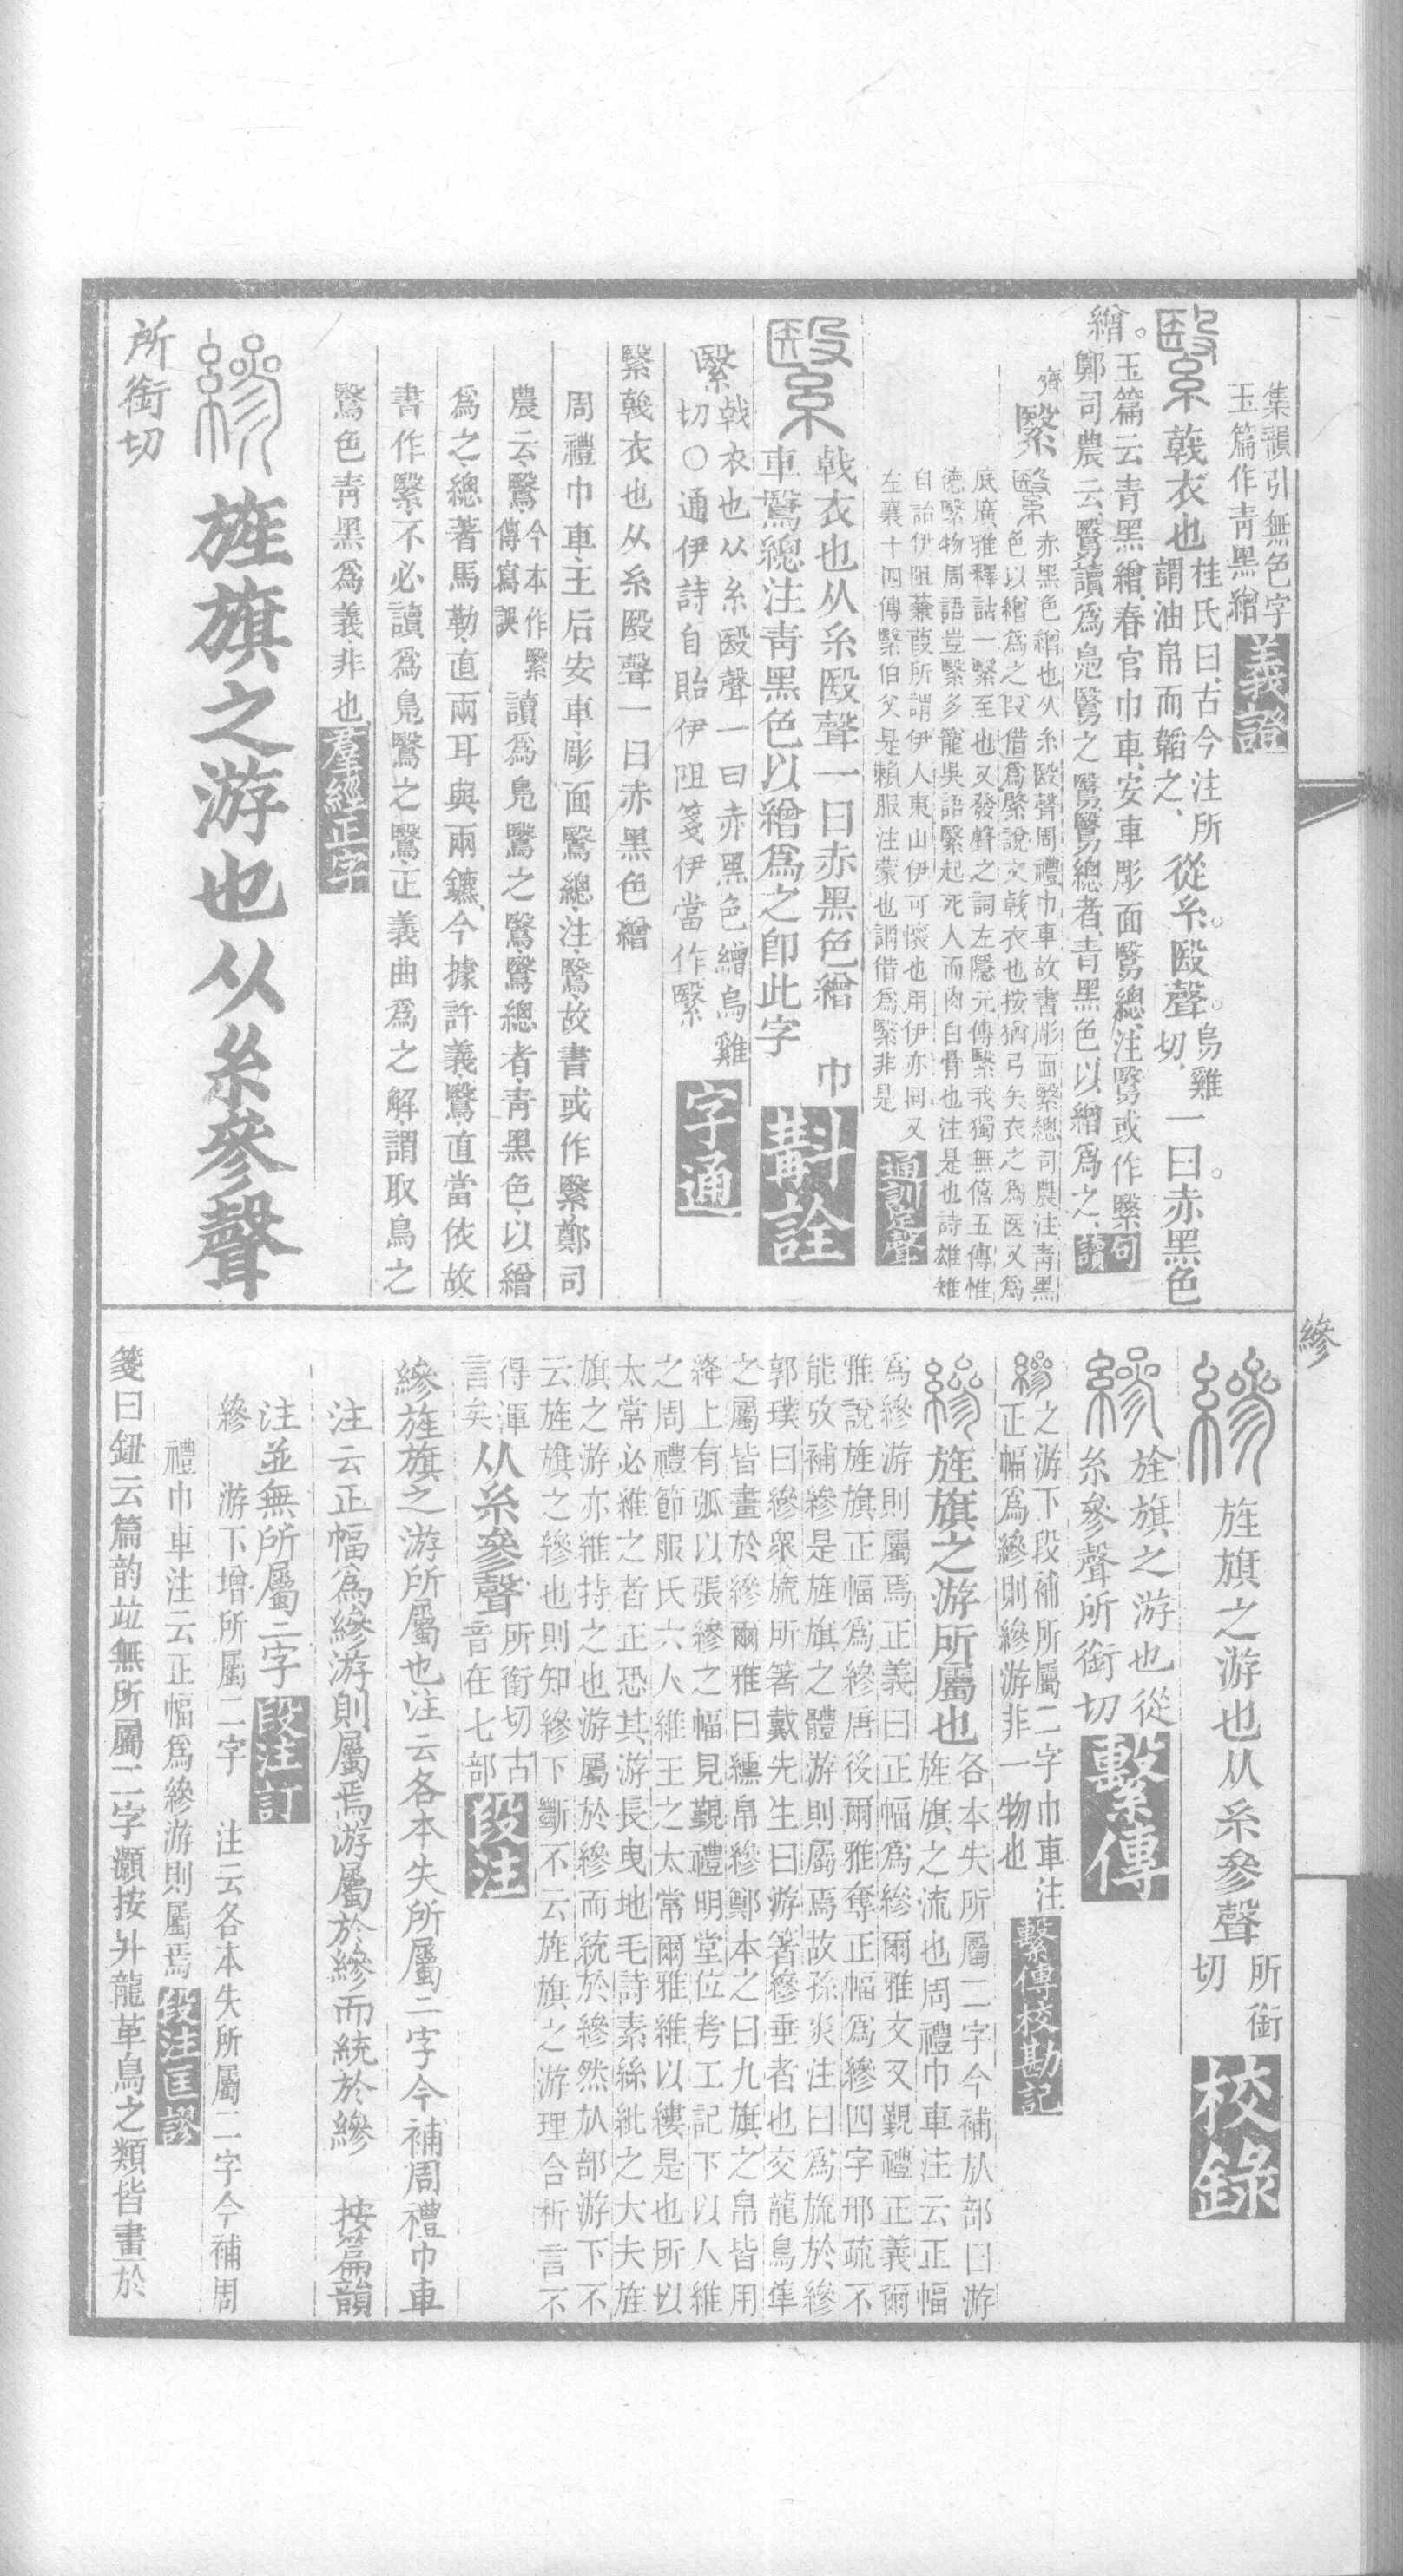 集韻引無色字
玉篇作青黑繒
義證
繄
戟衣也
桂氏曰古今注所
謂油帛而韜之
從糸。殹聲。
烏雞
切
一曰。赤黑色
繒。
玉篇云青黑繒春官巾車安車彫面鷖總注鷖或作繄
鄭司農云鷖讀爲鳧鷖之鷖鷖總者青黑色以繒爲之
句讀
齊
繄
赤黑色繒也从糸殹聲周禮巾車故書彫面繄總司農注青黑
色以繒爲之叚借爲繄說文戟衣也按猶弓矢衣之爲医又爲
底廣雅釋詁一繄至也又發聲之詞左隱元傳繄我獨無僖五傳惟
德繄物周語豈繄多寵吳語繄起死人而肉白骨也注是也詩雄雉
自詒伊阻蒹葭所謂伊人東山伊可懷也用伊亦同又
左襄十四傳繄伯父是賴服注蒙也謂借爲繄非是
通訓定聲
繄
戟衣也从糸殹聲一曰赤黑色繒　巾
車鷖總注青黑色以繒爲之卽此字
斠詮
繄
戟衣也从糸殹聲一曰赤黑色繒烏雞
切〇通伊詩自貽伊阻箋伊當作繄
字通
繄戟衣也从糸殹聲一曰赤黑色繒
周禮巾車主后安車彫面鷖總注鷖故書或作繄鄭司
農云鷖
今本作繄
傳寫誤
讀爲鳧鷖之鷖鷖總者青黑色以繒
爲之總著馬勒直兩耳與兩鑣今據許義鷖直當依故
書作繄不必讀爲鳧鷖之鷖正義曲爲之解謂取鳥之
鷖色青黑爲義非也
羣經正字
縿
旌旗之游也从糸參聲
所銜切
縿
縿
旌旗之游也从糸參聲
所銜
切
校錄
縿
旌旗之游也從
糸參聲所銜切
繫傳
縿
之游下段補所屬二字巾車注
正幅爲縿則縿游非一物也
繫傳校勘記
縿
旌旗之游所屬也
各本失所屬二字今補㫃部曰游
旌旗之流也周禮巾車注云正幅
爲縿游則屬焉正義曰正幅爲縿爾雅文又覲禮正義爾
雅說旌旗正幅爲縿唐後爾雅奪正幅爲縿四字邢疏不
能攷補縿是旌旗之體游則屬焉故孫炎注曰爲旒於縿
郭璞曰縿眾旒所箸戴先生曰游箸縿垂者也交龍鳥隼
之屬皆畫於縿爾雅曰纁帛縿鄭本之曰九旗之帛皆用
絳上有弧以張縿之幅見覲禮明堂位考工記下以人維
之周禮節服氏六人維王之太常爾雅維以縷是也所㠯
太常必維之者正恐其游長曳地毛詩素絲紕之大夫旌
旗之游亦維持之也游屬於縿而統於縿然㫃部游下不
云旌旗之縿也則知縿下斷不云旌旗之游理合析言不
得渾
言矣
从糸參聲
所銜切古
音在七部
段注
縿旌旗之游所屬也注云各本失所屬二字今補周禮巾車
注云正幅爲縿游則屬焉游屬於縿而統於縿　按篇韻
注並無所屬二字
段注訂
縿　游下增所屬二字　注云各本失所屬二字今補周
禮巾車注云正幅爲縿游則屬焉
段注匡謬
箋曰鈕云篇韵並無所屬二字灝按升龍革鳥之類皆畫於